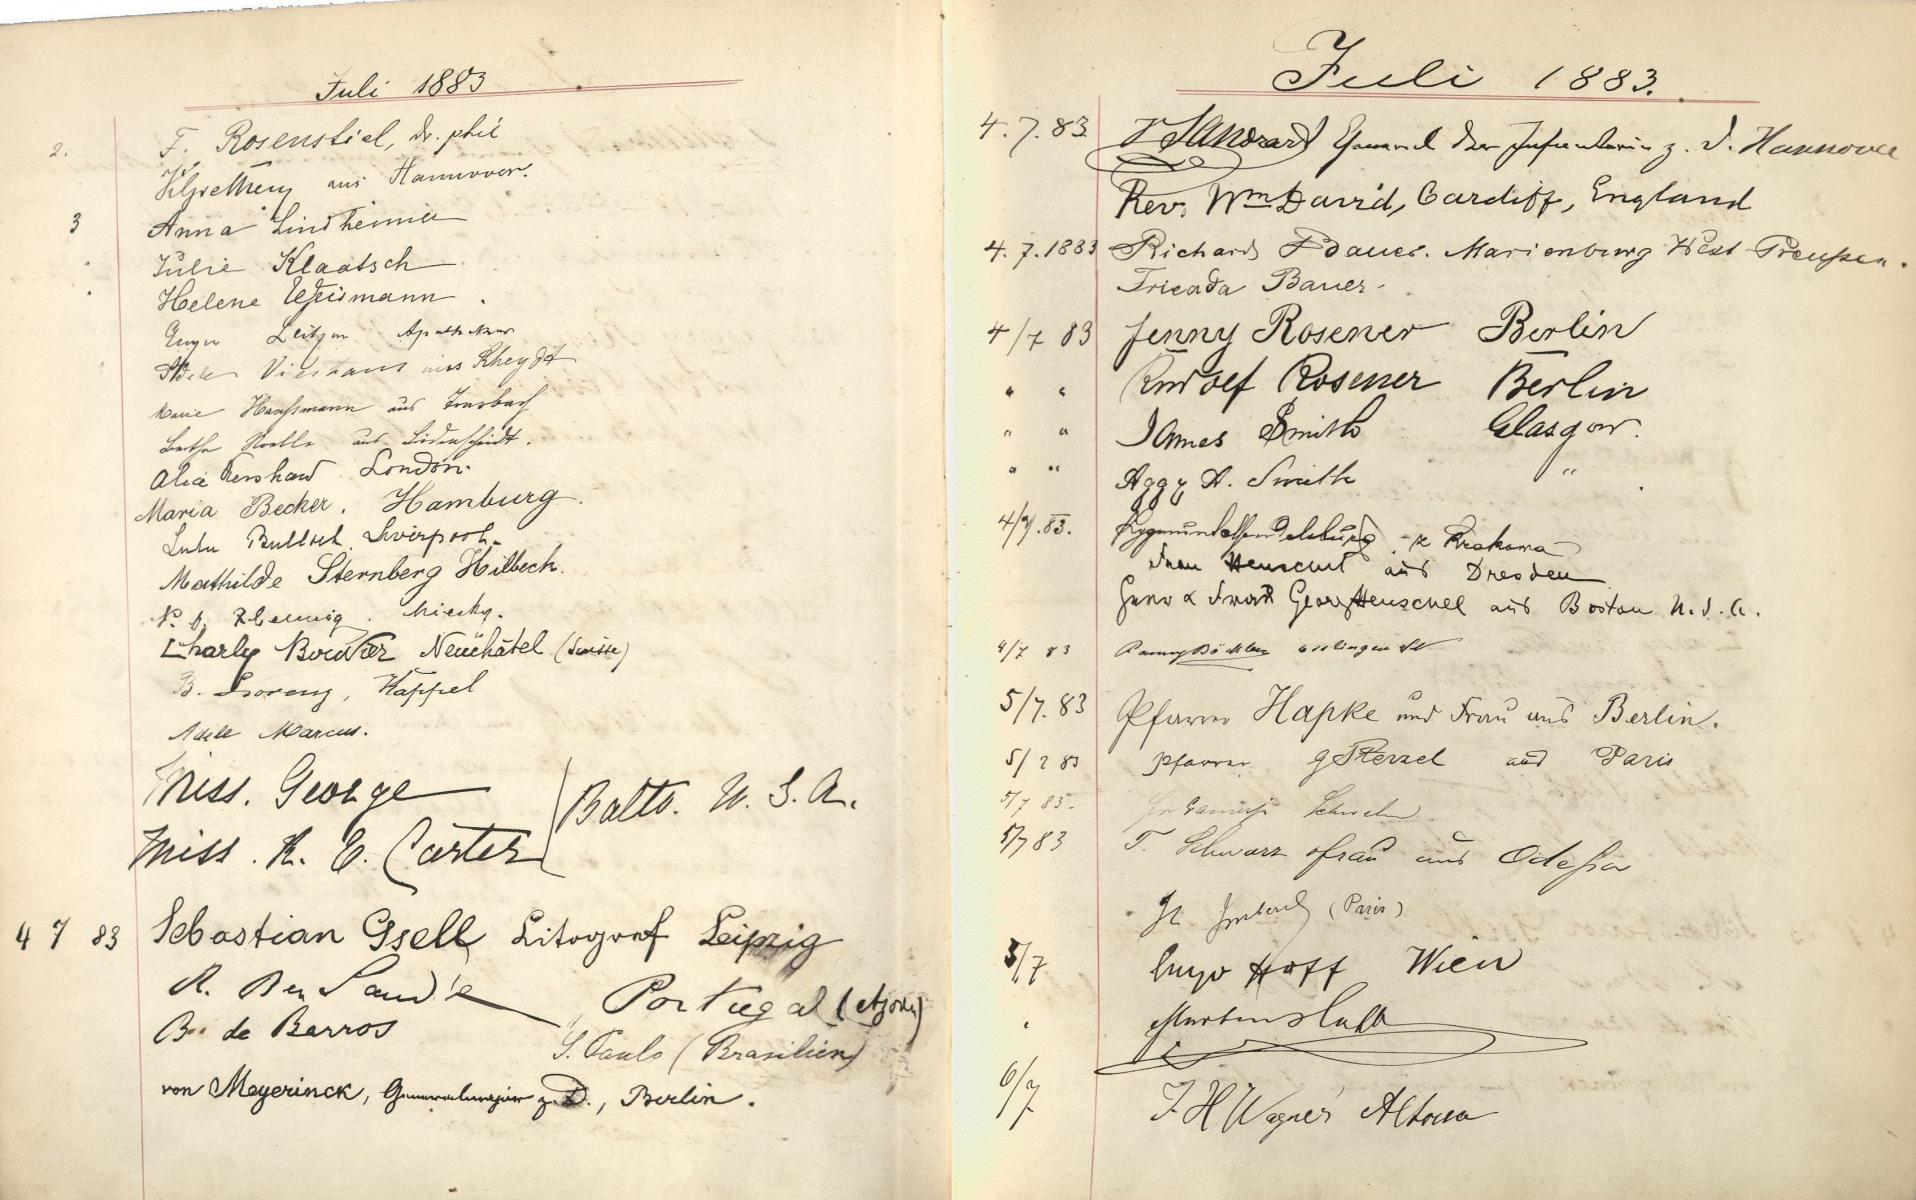 Juli 1883
2.
F. Rosenstiel, Dr. phil
aus Hannover.
3
Anna Lindheimer
Julie Klaatsch
Helene Weismann
Apotheker
Adele Vierhaus aus Rheydt
Marie Haußmann aus Trarbach
Bertha Noelle aus Lüdenscheidt.
Alice Renshaw London.
Maria Becker. Hamburg.
Lulu Bulloch Liverpool.
Mathilde Sternberg Hilbeck.
Charly Bouvier Neuchâtel (Suisse)
B. Lorenz, Kappel
Adele Marcus.
Miss. George
Miss. K. E. Carter
Balto. U. S. A.
4 7 83 Sebastian Gsell Litograf Leipzig
A. Ben Saude Portugal (Azoren)
B. de Barros S. Paulo (Brasilien)
von Meyerinck, Generalmajor z. D., Berlin.
Juli 1883.
4. 7. 83 v Sandrart General der Infanterie z. D. Hannover
Rev. Wm David, Cardiff, England
4. 7. 1883 Richard Bauer. Marienburg West-Preußen.
Frieda Bauer.
4/7 83 Jenny Rosener Berlin
" " Rudolf Rosener Berlin
" " James Smith Glasgow.
" " Aggy A. Smith "
4/7. 83. z Krakowa
Frau Henschel aus Dresden
Herr & Frau Georg Henschel aus Boston U. S. A.
4/7 83
5/7. 83 Pfarrer Hapke und Frau aus Berlin.
5/7 83 Pfarrer aus Paris
5/7 83.
5/7 83 T. Schwarz & Frau aus Odessa
(Paris)
5/7 Hugo Hoff Wien
"
6/7 J. H Wagner Altona